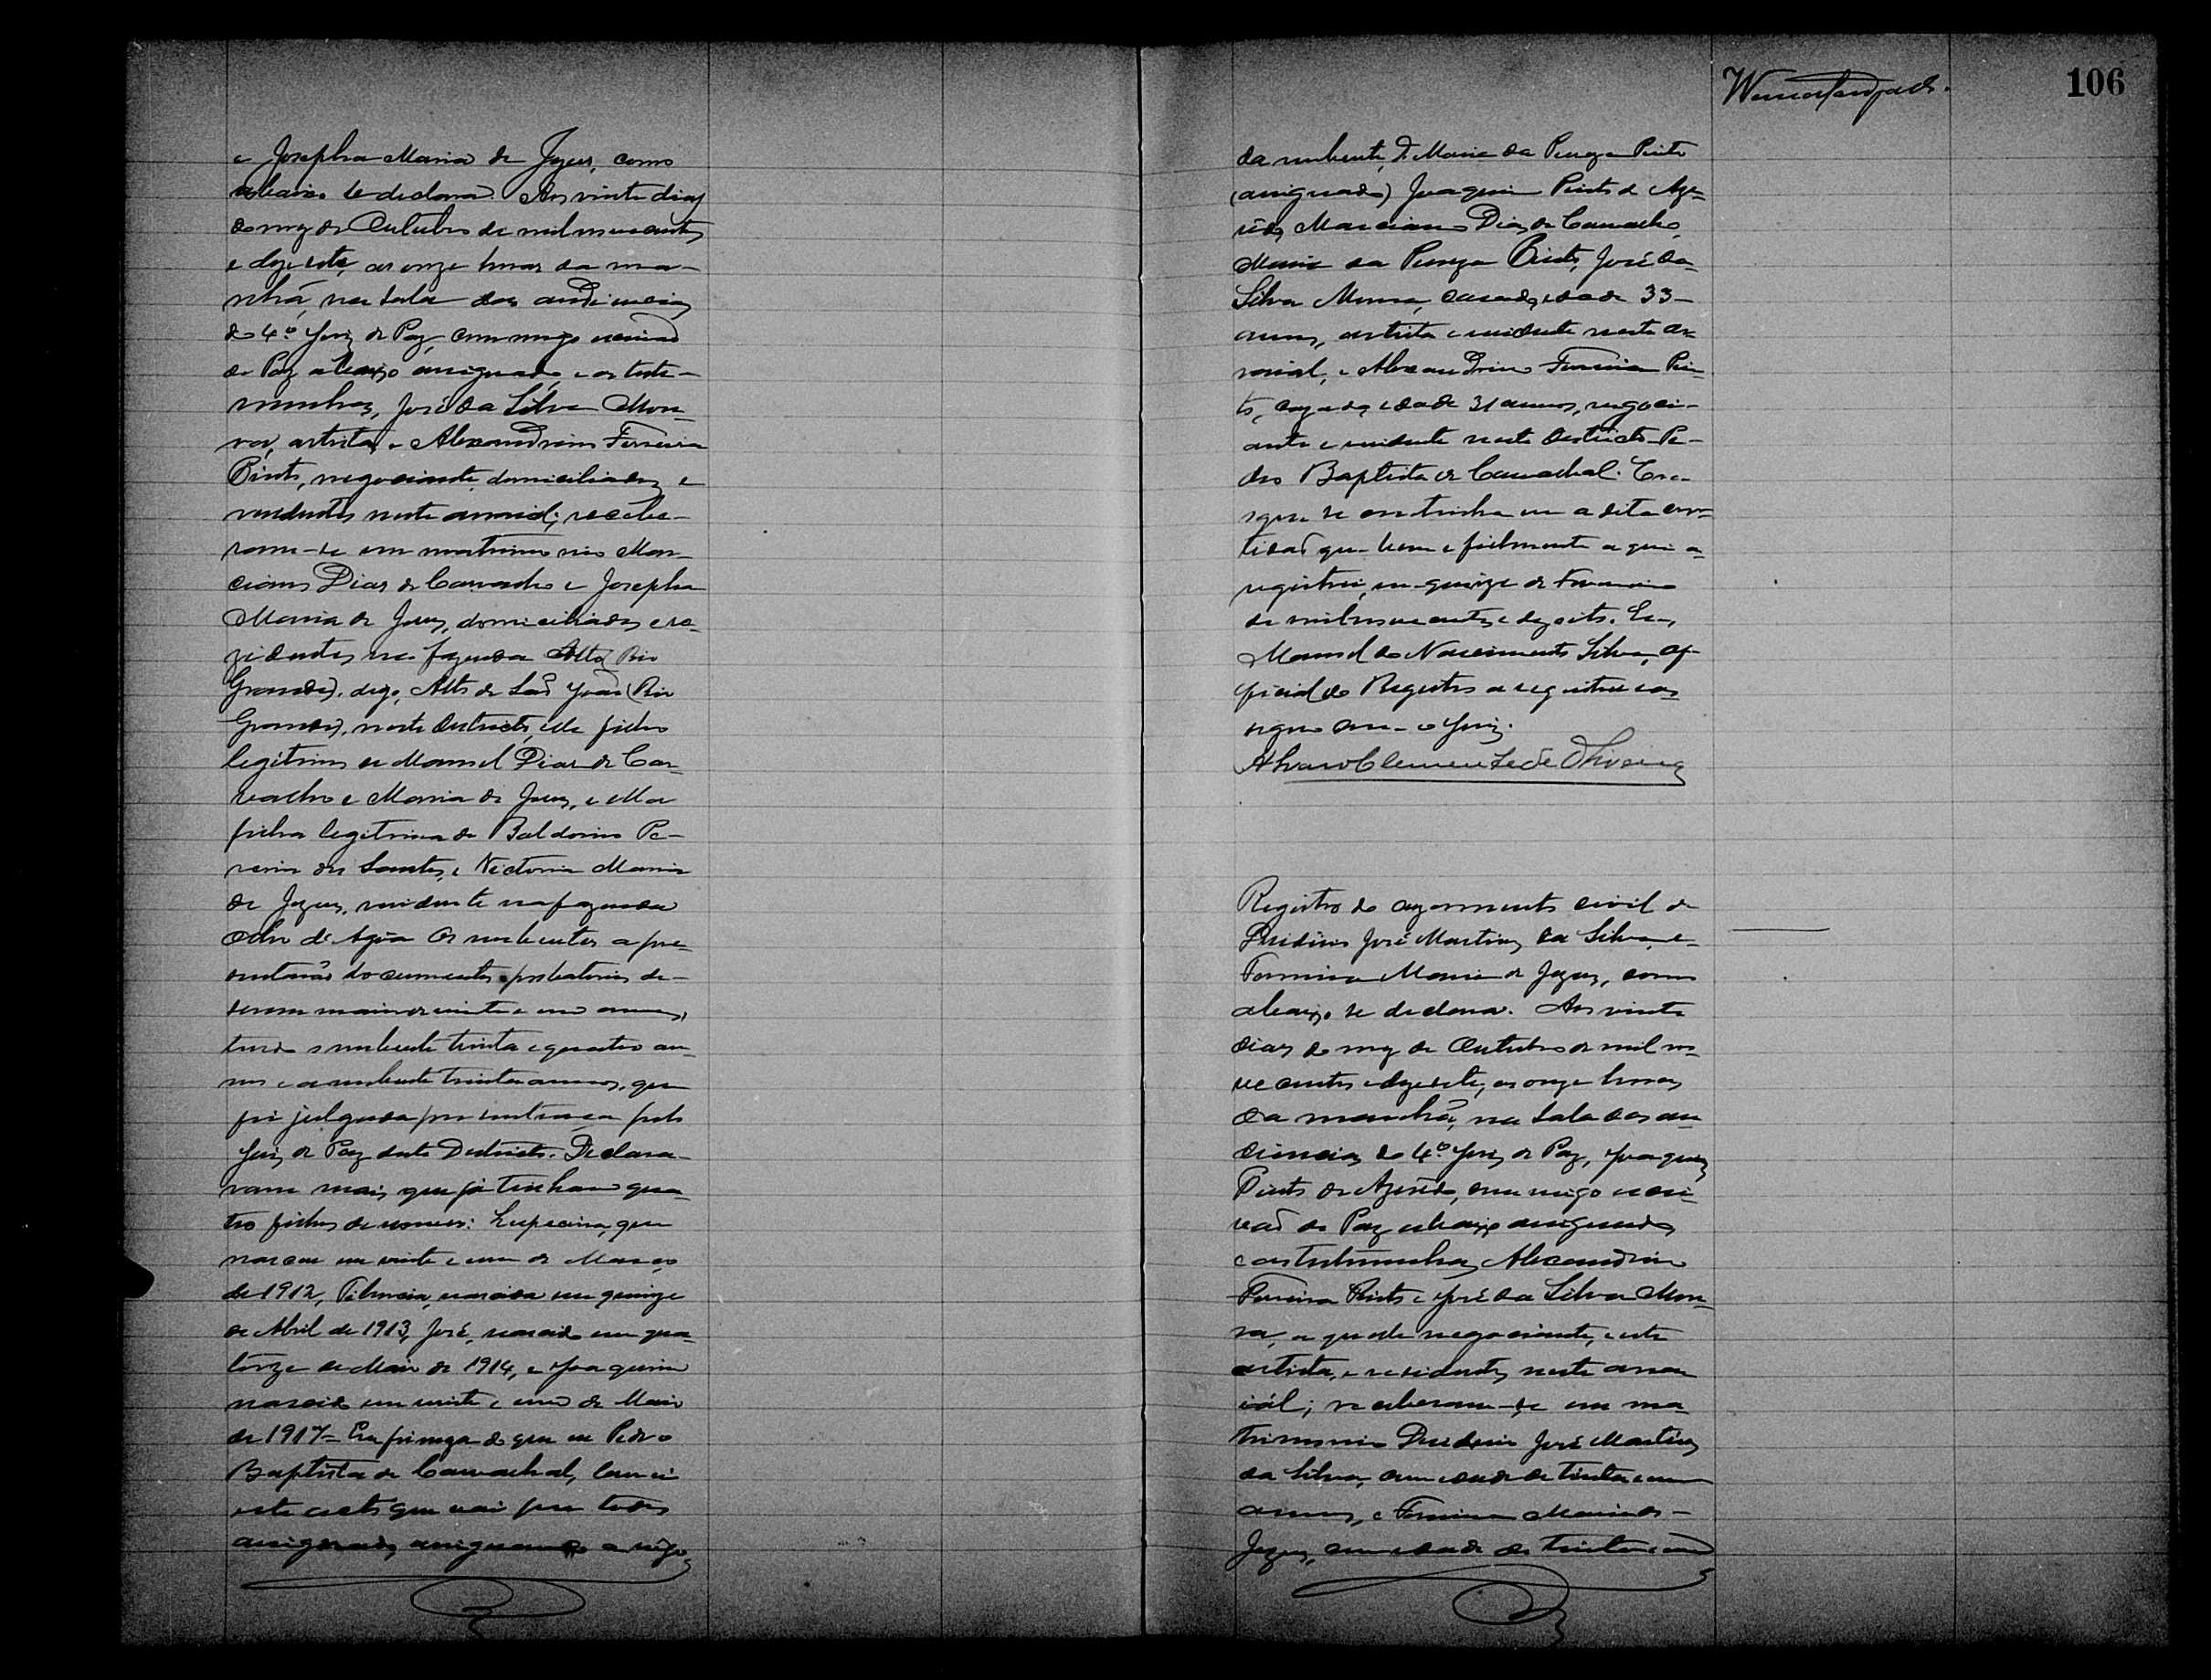 e Josepha Maria de Jezus, como
abaixo se declara. Aos vinte dias
do mez de Outubro de mil novecentos
e dezesete, as onze horas da ma-
nhã, na sala das audiencias
do 4º Juiz de Paz, commigo escrivão
de Paz abaixo assignado, e as teste-
munhas, José da Silva Mou-
ra, artista, e Alexandrino Ferreira
Pinto, negociante, domiciliados e
residentes neste arraial; recebe-
ram-se em matrimonio Mar-
ciano Dias de Carvalho e Josepha
Maria de Jesus, domiciliados e re-
zidentes na fazenda Alto (Rio
Grande), digo, Alto de São João (Rio
Grande), neste districto, elle filho
legitimo de Manoel Dias de Car-
valho e Maria de Jesus, e ella
filha legitima de Baldoino Pe-
reira dos Santos e Victoria Maria
de Jezus, residente na fazenda
Olho d'Agôa. Os nubentes apre-
sentarão documentos probatorios de
serem maiores vinte e um annos,
tendo o nubente trinta e quatro an-
nos e a nubente trinta annos, que
foi julgada por sentença pelo
Juiz de Paz deste Districto. Declara-
ram mais que já tinham qua-
tro filhos de nomes: que
nasceu em vinte e um de Março
de 1912, nascida em quinze
de Abril de 1913, José, nascido em qua-
torze de Maio de 1914, e Joaquim
nascido em vinte e um de Maio
de 1917. Em firmeza do que eu Pedro
Baptista de Carvalhal, lavrei
este acto que vai por todos
assignado, assignando a rogo
106
da nubente, D. Maria da Pureza Pinto
(assignados) Joaquim Pinto de Aze-
vêdo, Marciano Dias de Carvalho,
Maria da Pureza Pinto, José da
Silva Moura, casado, edade 33
annos, artista e residente neste ar-
raial, e Alexandrino Ferreira Pin-
to, cazado, edade 31 annos, negoci-
ante e residente neste districto. Pe-
dro Baptista de Carvalhal. Era o
que se continha em a dita cer-
tidão que bem e fielmente aqui a
registrei, em quinze de Fevereiro
de mil novecentos e dezoito. Eu,
Manoel do Nascimento Silva, of-
ficial do Registro a registrei e as-
signo com o Juiz.
Alvaro Clemente de Oliveira
Registro do cazamento civil de
José Martins da Silva e
Firmina Maria de Jezus, como
abaixo se declara. Aos vinte
dias do mez de Outubro de mil no-
vecentos e dezesete, as onze horas
da manhã, na sala das au-
diencias do 4º Juiz de Paz, Joaquim
Pinto de Azevêdo, commigo escri-
vão de Paz abaixo assignado
e as testemunhas Alexandrino
Ferreira Pinto e José da Silva Mou-
ra, aquelle negociante, e este
artista, e residentes neste arra-
iál; receberam-se em ma-
trimonio José Martins
da Silva, com edade de trinta e um
annos, e Firmina Maria de
Jezus, com edade de trinta e um